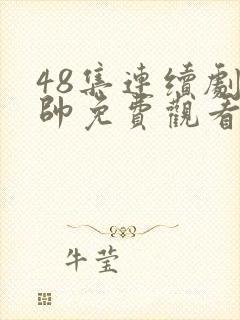 48集連續劇
帥免費觀看
牛莹